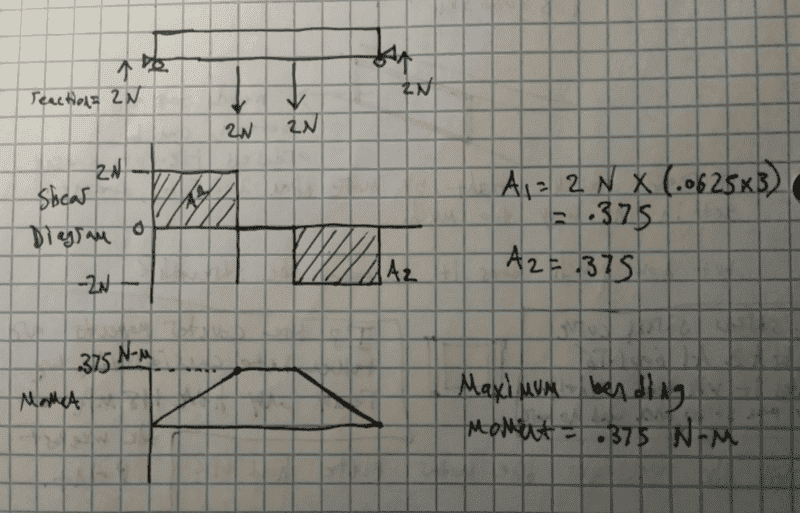 reaction= 2N
2N
2N
2N
2N
Shear
Diagram
0
-2N
A2
A2
A1 = 2 N X (.0625x3)
= .375
A2 = .375
.375 N-M
Momet
Maximum bending
moment = .375 N-M